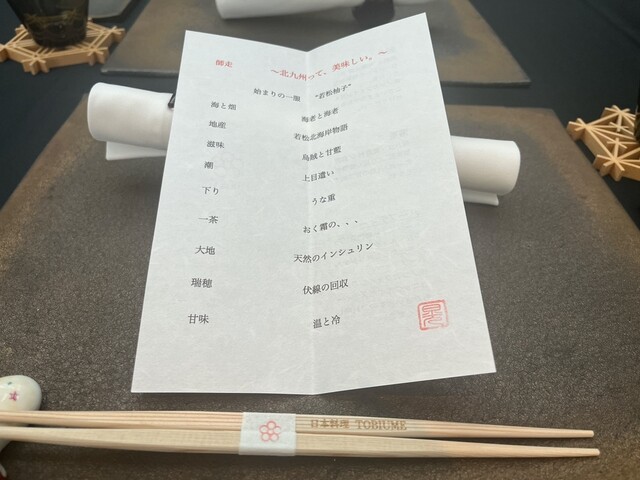 師走 ～北九州って、美味しい。～
始まりの一皿 "若松柚子"
海と畑 海老と海老
地産 若松北海岸物語
滋味 烏賊と甘藍
潮 上目遣い
下り うな重
一茶 おく霜の、、、
大地 天然のインシュリン
瑞穂 伏線の回収
甘味 温と冷
日本料理 TOBIUME